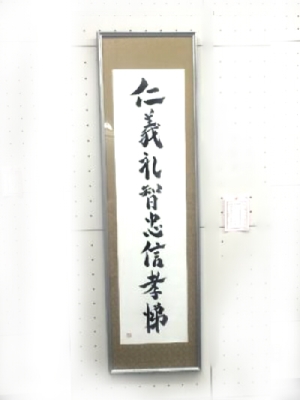 仁義礼智忠信孝悌